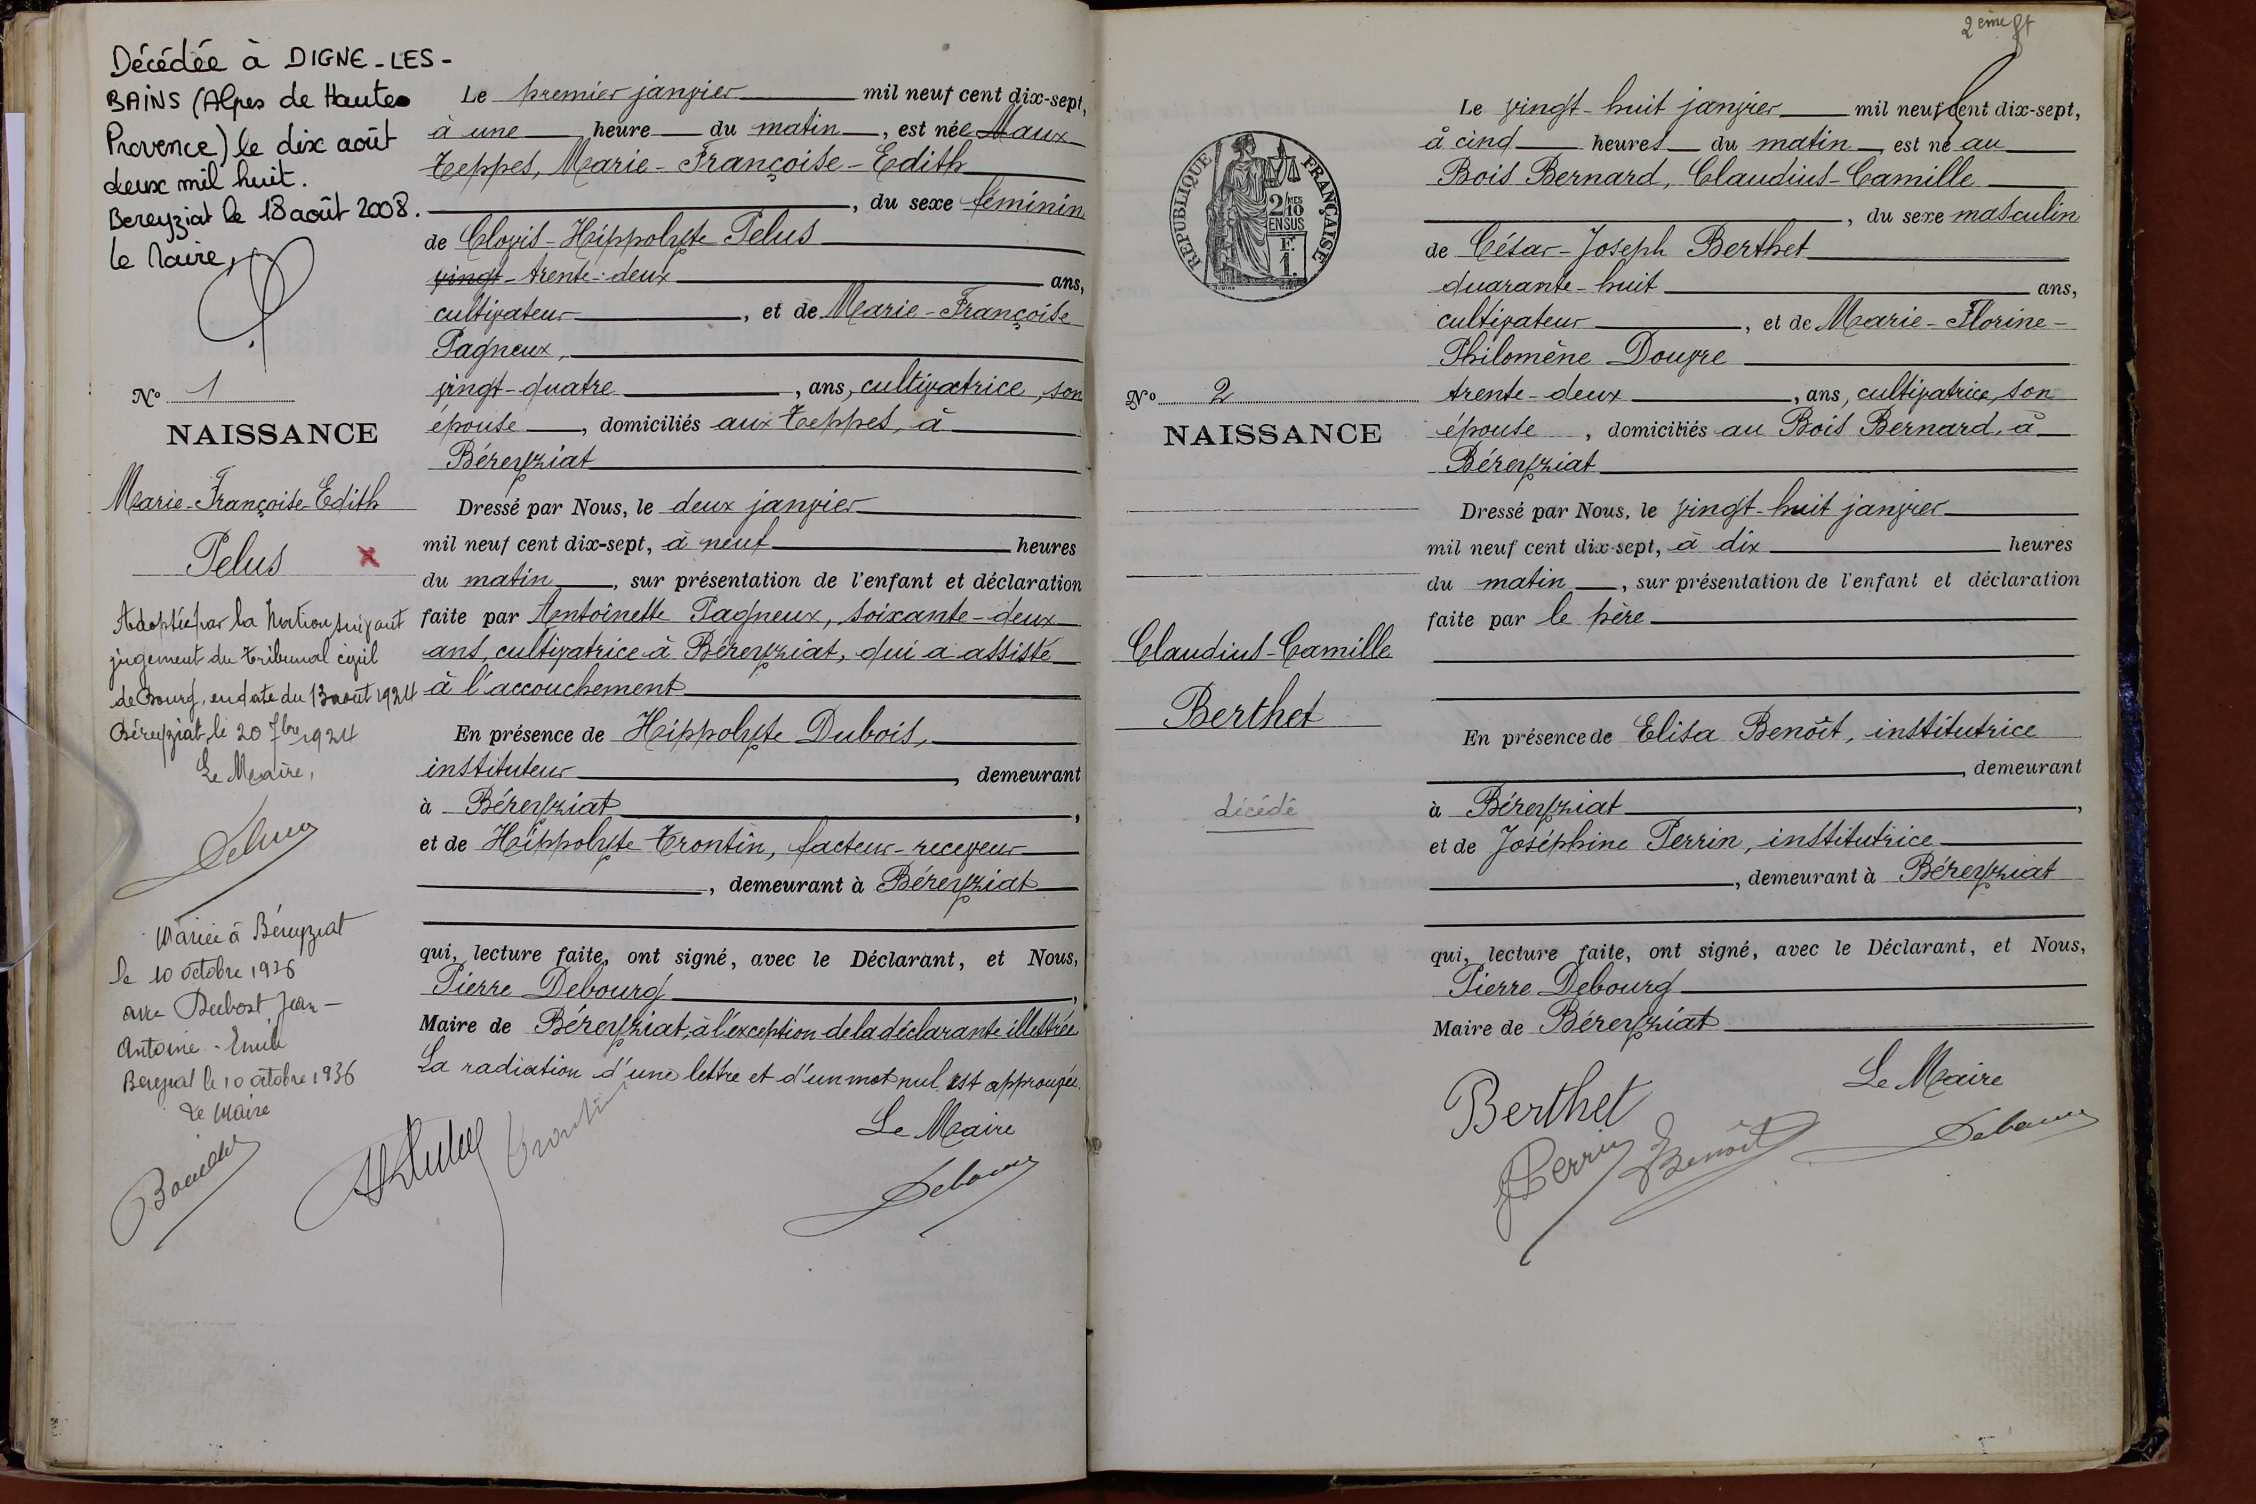 Décédée à DIGNE-LES-
BAINS (Alpes de Haute
Provence) le dix août
deux mil huit.
Bereyziat le 18 août 2008.
Le Maire,
No 1
NAISSANCE
Marie-Françoise-Edith
Pelus
Adoptée par la Nation suivant
jugement du tribunal civil
de Bourg, en date du 13 août 1924
Béreyziat, le 20 7bre 1924
Le Maire,
Mariée à Béreyziat
le 10 octobre 1936
avec Dubost, Jean-
Antoine-Emile
Bereyziat le 10 octobre 1936
Le Maire
Le premier janvier mil neuf cent dix-sept,
à une heure du matin, est née aux
Teppes, Marie-Françoise-Edith
, du sexe féminin
de Clovis-Hippolyte Pelus
vingt-trente-deux ans,
cultivateur, et de Marie-Françoise
Pagneux,
vingt-quatre, ans, cultivatrice, son
épouse, domiciliés aux Teppes, à
Béreyziat
Dressé par Nous, le deux janvier
mil neuf cent dix-sept, à neuf heures
du matin, sur présentation de l'enfant et déclaration
faite par Antoinette Pagneux, soixante-deux
ans, cultivatrice à Béreyziat, qui a assisté
à l'accouchement
En présence de Hippolyte Dubois,
instituteur, demeurant
à Béreyziat,
et de Hippolyte Trontin, facteur-receveur
, demeurant à Béreyziat
qui, lecture faite, ont signé, avec le Déclarant, et Nous,
Pierre Debourg,
Maire de Béreyziat, à l'exception de la déclarante illettrée
La radiation d'une lettre et d'un mot nul est approuvée.
Trontin
Le Maire
Debourg
2ème ft
RÉPUBLIQUE FRANÇAISE
2/10 MES
EN SUS
F.
1.
No 2
NAISSANCE
Claudius-Camille
Berthet
décédé
Le vingt-huit janvier mil neuf cent dix-sept,
à cinq heures du matin, est né au
Bois Bernard, Claudius-Camille
, du sexe masculin
de César-Joseph Berthet
quarante-huit ans,
cultivateur, et de Marie-Florine-
Philomène Douvre
trente-deux, ans, cultivatrice, son
épouse, domiciliés au Bois Bernard, à
Béreyziat
Dressé par Nous, le vingt-huit janvier
mil neuf cent dix-sept, à dix heures
du matin, sur présentation de l'enfant et déclaration
faite par le père
En présence de Elisa Benoît, institutrice
, demeurant
à Béreyziat,
et de Joséphine Perrin, institutrice
, demeurant à Béreyziat
qui, lecture faite, ont signé, avec le Déclarant, et Nous,
Pierre Debourg
Maire de Béreyziat
Le Maire
Berthet
J Perrin
E Benoît
Debourg